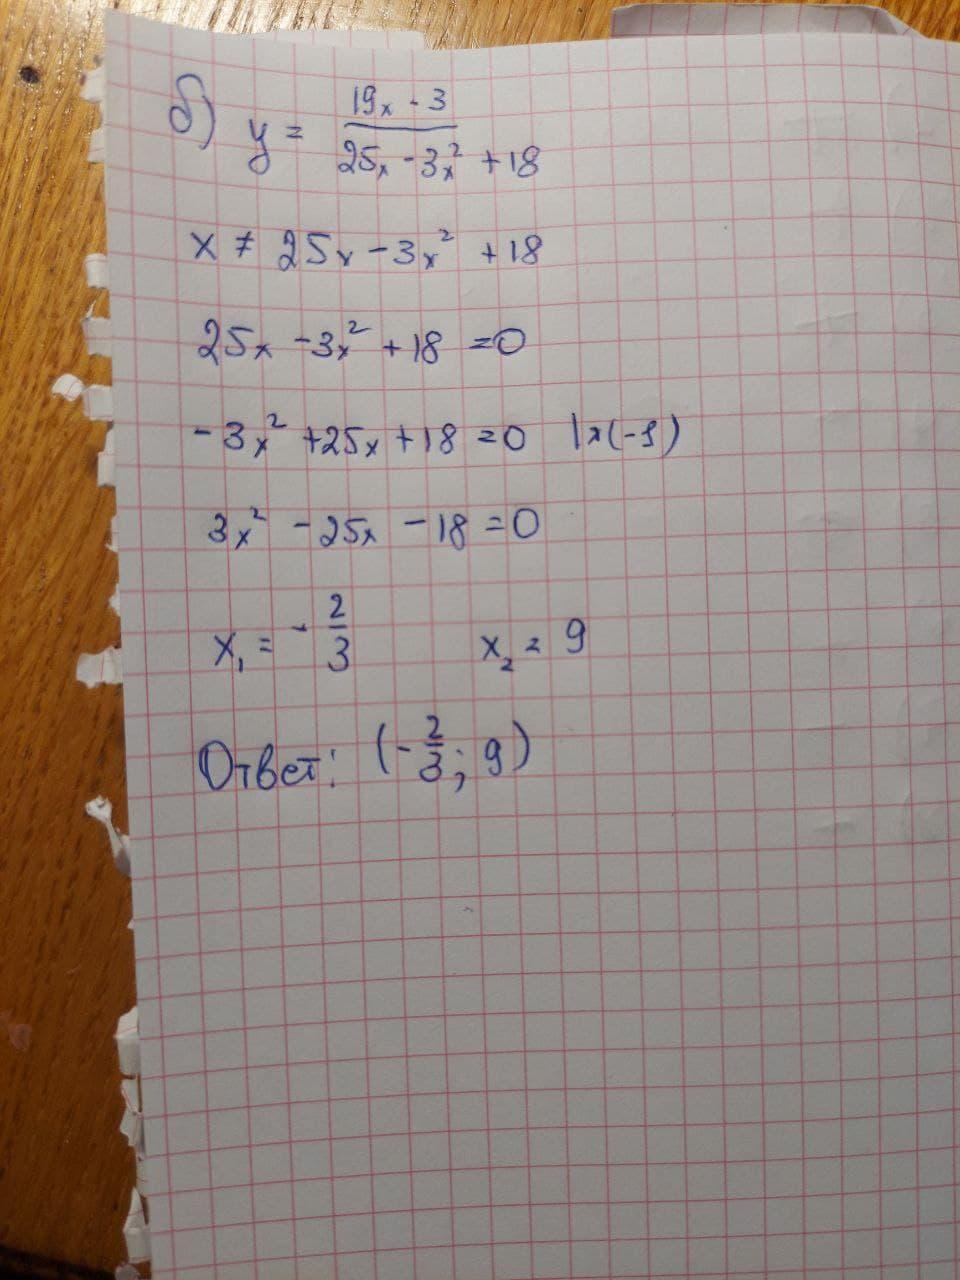 б) y = \frac{19x - 3}{25x - 3x^2 + 18}
x ≠ 25x - 3x² + 18
25x - 3x² + 18 = 0
-3x² + 25x + 18 = 0 |x(-1)
3x² - 25x - 18 = 0
x₁ = -\frac{2}{3} x₂ = 9
Ответ: (-\frac{2}{3}; 9)